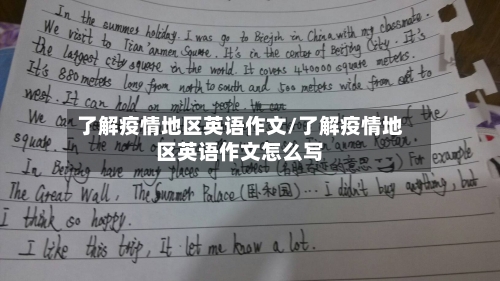 In the summer holiday. I was go to Biejsh in China with my classmate.
We visit to Tian'anmen Square. It's in the center of Beijing City. It's
the largest city square in the world. It covers 440000 square meters.
It's 880 meters long from north to south and 500 meters wide from east to
west. It can hold on million people.
We can the
了解疫情地区英语作文/了解疫情地
区英语作文怎么写
square. In the north
In Beijing have many places of interest For example
The Great Wall, The Summer Palace(国·和园)... I didn't buy anything, but
I think so happy.
I like this trip, It let me know a lot.